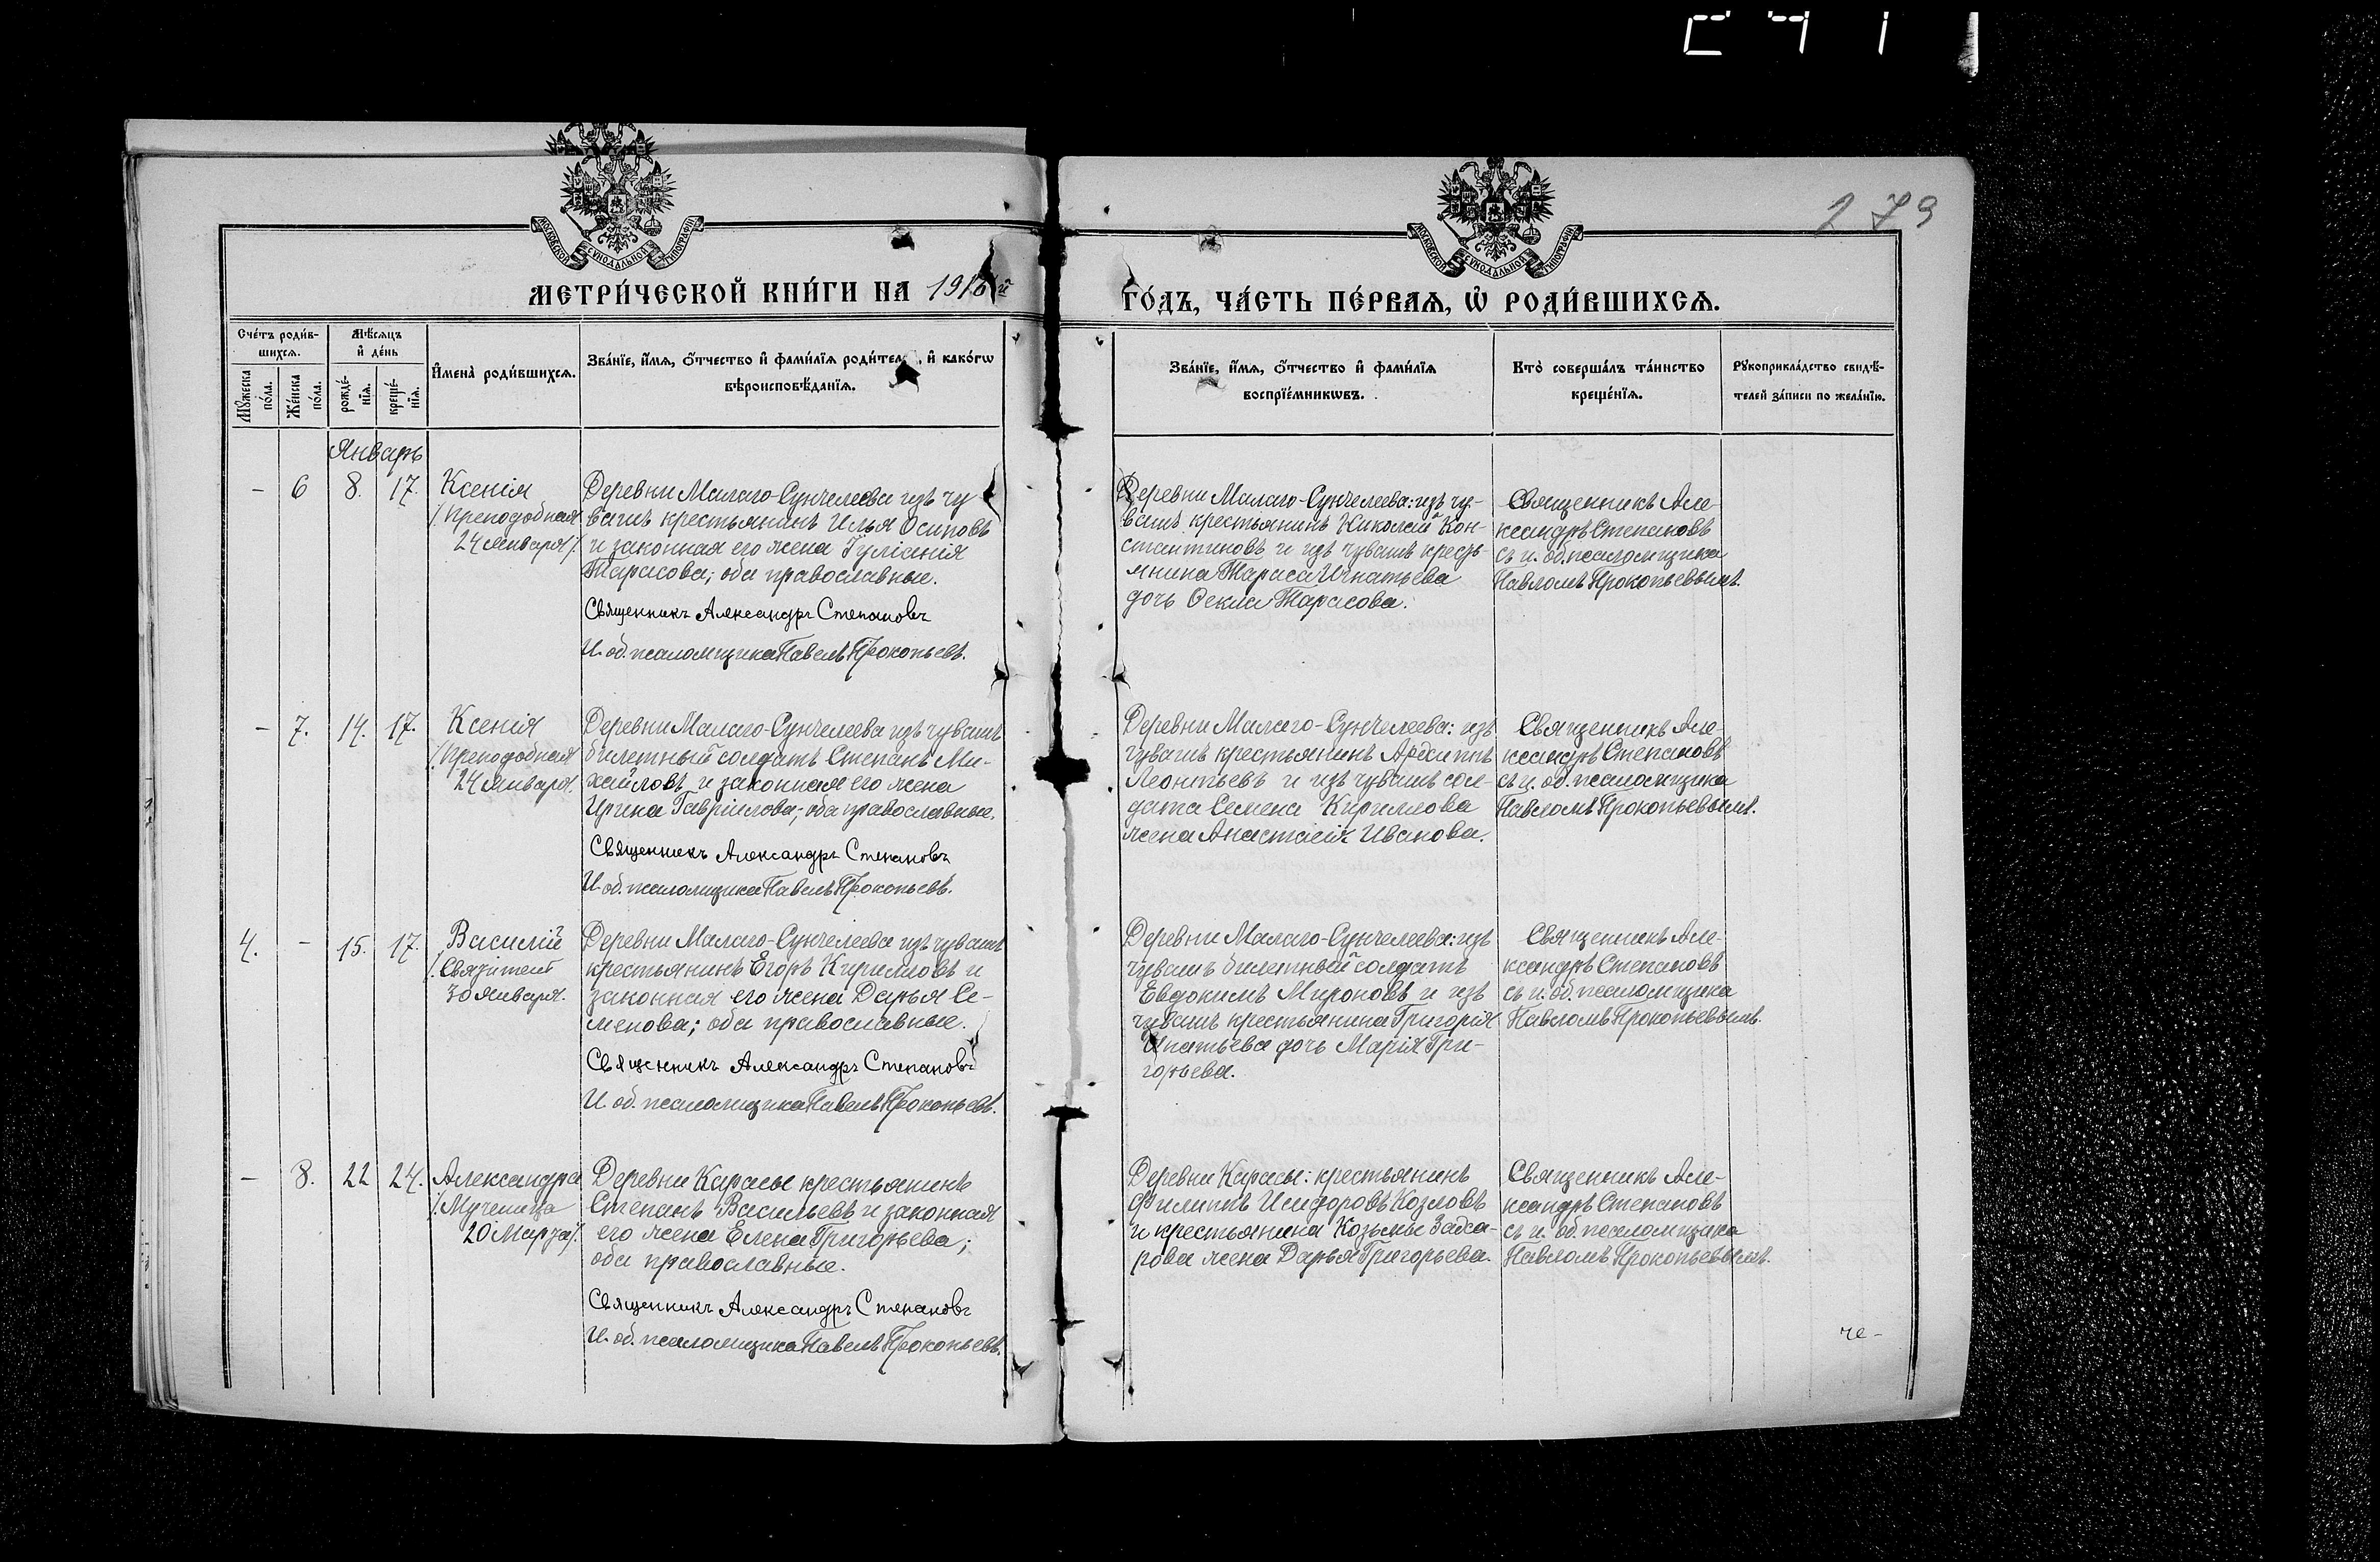 279
МОСКОВСКОЙ СѴНОДАЛЬНОЙ ТИПОГРАФІИ
МОСКОВСКОЙ СѴНОДАЛЬНОЙ ТИПОГРАФІИ
МЕТРИ́ЧЕСКОЙ КНИ́ГИ НА 1916 й
ГО́ДЪ, ЧА́СТЬ ПЕ́РВАѦ, Ѡ҆ РОДИ́ВШИХСѦ.
Сче́тъ роди́в-
шихсѧ.
Мѣ́сѧцъ
и҆ де́нь
Мꙋ́жеска
по́ла.
Же́нска
по́ла.
рожде́-
нїѧ.
креще́-
нїѧ.
И҆мена̀ роди́вшихсѧ.
Зва́нїе, и҆́мѧ, ѻ҆́тчество и҆ фами́лїѧ роди́тел , и҆ како́гѡ
вѣроисповѣ́данїѧ.
Зва́нїе, и҆́мѧ, ѻ҆́тчество и҆ фами́лїѧ
воспрїе́мникѡвъ.
Кто̀ соверша́лъ та́инство
креще́нїѧ.
Рꙋкоприкла́дство свидѣ́-
телей за́писи по жела́нїю.
Январь
- 6 8. 17.
Ксенія
/Преподобная
24 января/.
Деревни Малаго-Сунчелеева изъ чу-
вашъ крестьянинъ Илья Осиповъ
и законная его жена Іуліанія
Тарасова; оба православные.
Священникъ Александръ Степановъ
И. об. псаломщика Павелъ Прокопьевъ.
Деревни Малаго-Сунчелеева: изъ чу-
вашъ крестьянинъ Николай Кон-
стантиновъ и изъ чувашъ кресть-
янина Тараса Игнатьева
дочь Ѳекла Тарасова.
Священникъ Але-
ксандръ Степановъ
съ и. об. псаломщика
Павломъ Прокопьевымъ.
- 7. 14. 17.
Ксенія
/Преподобная
24 января.
Деревни Малаго-Сунчелеева изъ чувашъ
билетный солдатъ Степанъ Ми-
хайловъ и законная его жена
Ирина Гавріилова; оба православные.
Священникъ Александръ Степановъ
И. об. псаломщика Павелъ Прокопьевъ.
Деревни Малаго-Сунчелеева: изъ
чувашъ крестьянинъ Архиппъ
Леонтьевъ и изъ чувашъ сол-
дата Семена Кириллова
жена Анастасія Иванова.
Священникъ Але-
ксандръ Степановъ
съ и. об. псаломщика
Павломъ Прокопьевымъ.
4. - 15. 17.
Василій
/.Святителя
30 января.
Деревни Малаго-Сунчелеева изъ чувашъ
крестьянинъ Егоръ Кирилловъ и
законная его жена Дарья Се-
менова; оба православные.
Священникъ Александръ Степановъ
И. об. псаломщика Павелъ Прокопьевъ.
Деревни Малаго-Сунчелеева: изъ
чувашъ билетный солдатъ
Евдокимъ Мироновъ и изъ
чувашъ крестьянина Григорія
Игнатьева дочь Марія Гри-
горьева.
Священникъ Але-
ксандръ Степановъ
съ и. об. псаломщика
Павломъ Прокопьевымъ.
- 8. 22 24.
Александра
/.Мученица
20 Марта/.
Деревни Карасы крестьянинъ
Степанъ Васильевъ и законная
его жена Елена Григорьева;
оба православные.
Священникъ Александръ Степановъ
И. об. псаломщика Павелъ Прокопьевъ.
Деревни Карасы: крестьянинъ
Филиппъ Исидоровъ Козловъ
и крестьянина Козьмы
жена Дарья Григорьева.
Священникъ Але-
ксандръ Степановъ
съ и. об. псаломщика
Павломъ Прокопьевымъ.
че-